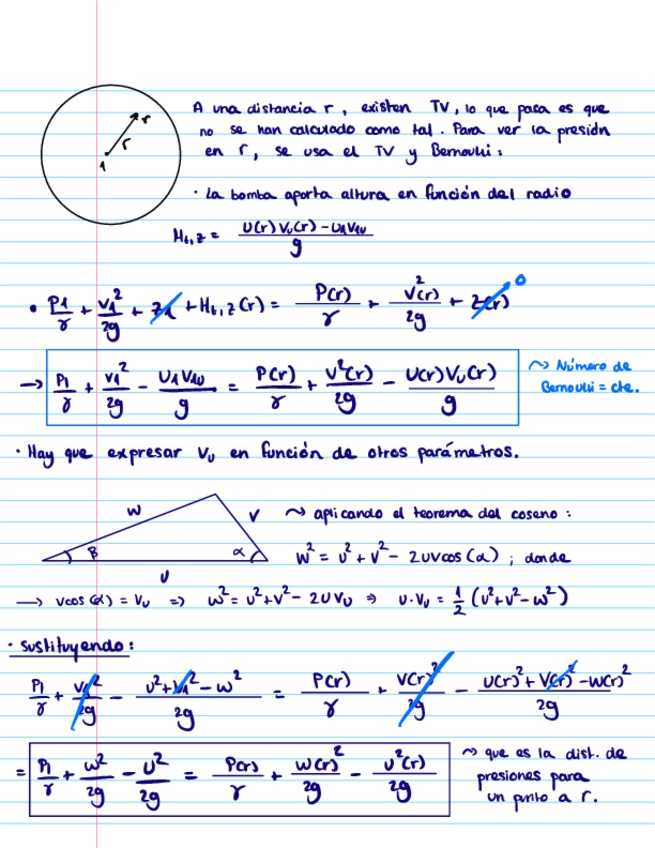 r
r
1
A una distancia r, existen TV, lo que pasa es que
no se han calculado como tal. Para ver la presión
en r, se usa el TV y Bernoulli:
· La bomba aporta altura en función del radio
H_{t,z} = (U(r)V_u(r) - U_1V_{1u})/g
· P_1/γ + V_1²/2g + z_1 + H_{t,z}(r) = P(r)/γ + V²(r)/2g + z(r) 0
→ P_1/γ + V_1²/2g - U_1V_{1u}/g = P(r)/γ + V²(r)/2g - U(r)V_u(r)/g ~> Número de
Bernoulli = cte.
· Hay que expresar V_u en función de otros parámetros.
w v β α u
~> aplicando el teorema del coseno:
w² = u² + v² - 2uv cos(α); donde
→ v cos(α) = V_u => w² = u² + v² - 2uV_u => u·V_u = 1/2 (u² + v² - w²)
· Sustituyendo:
P_1/γ + V_1²/2g - (u² + V_1² - w²)/2g = P(r)/γ + V(r)²/2g - (U(r)² + V(r)² - w(r)²)/2g
= P_1/γ + w²/2g - u²/2g = P(r)/γ + w(r)²/2g - u²(r)/2g ~> que es la dist. de
presiones para
un punto a r.